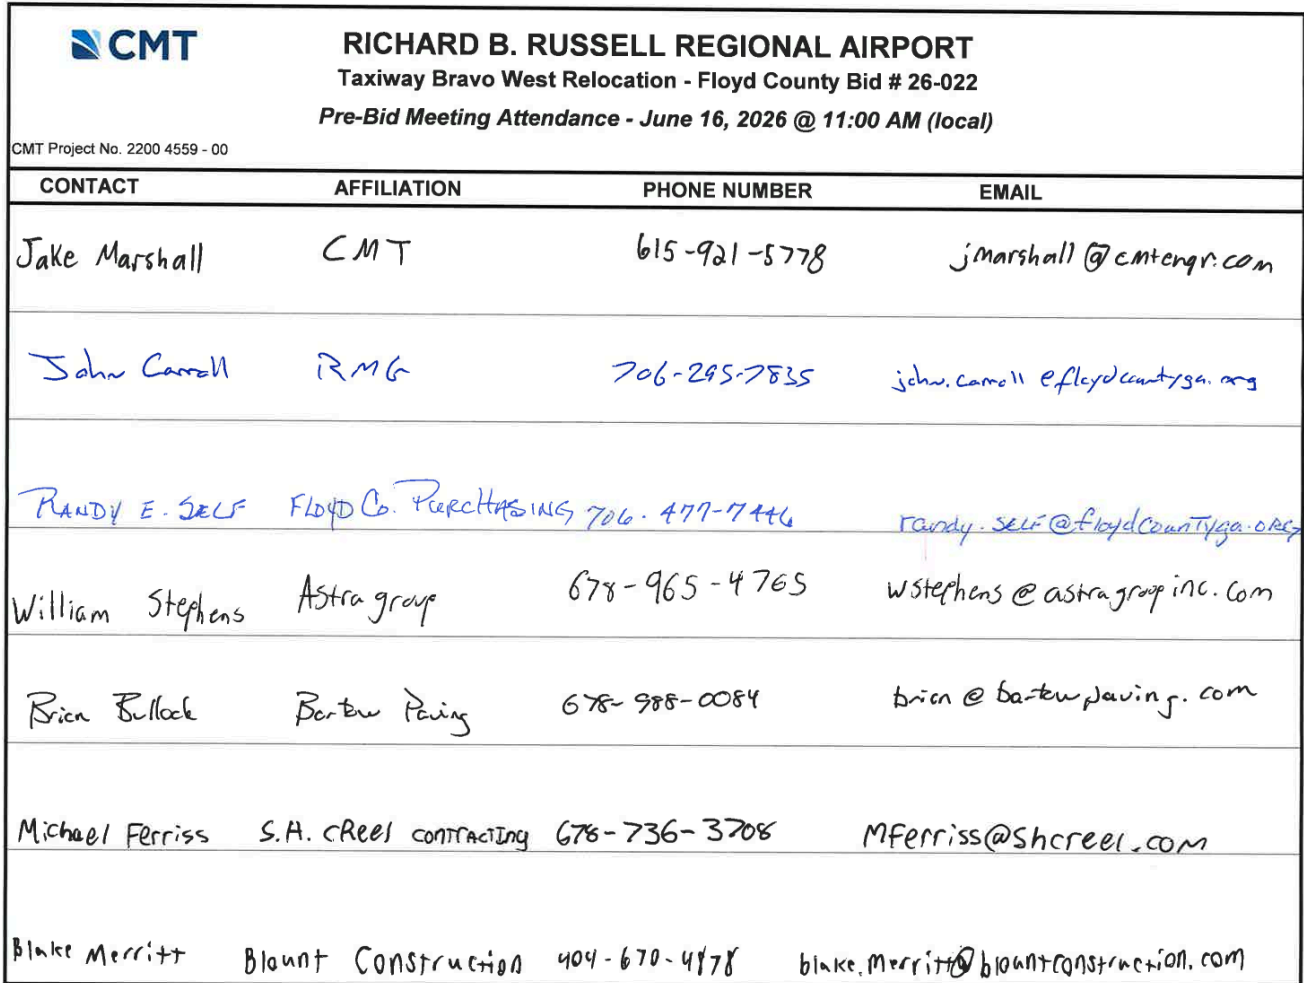 CMT
RICHARD B. RUSSELL REGIONAL AIRPORT
Taxiway Bravo West Relocation - Floyd County Bid # 26-022
Pre-Bid Meeting Attendance - June 16, 2026 @ 11:00 AM (local)
CMT Project No. 2200 4559 - 00
CONTACT AFFILIATION PHONE NUMBER EMAIL
Jake Marshall CMT 615-921-5778 jmarshall@cmtengr.com
John Carroll RMG 706-295-7835 john.carroll@floydcountyga.org
RANDY E. SELF FLOYD Co. PURCHASING 706.477-7446 randy.self@floydcountyga.org
William Stephens Astra group 678-965-4765 wstephens@astragroupinc.com
Brian Bullock Bartow Paving 678-988-0084 brian@bartowpaving.com
Michael Ferriss S.H. CReel contracting 678-736-3708 Mferriss@shcreel.com
Blake Merritt Blount Construction 404-670-4878 blake.merritt@blountconstruction.com